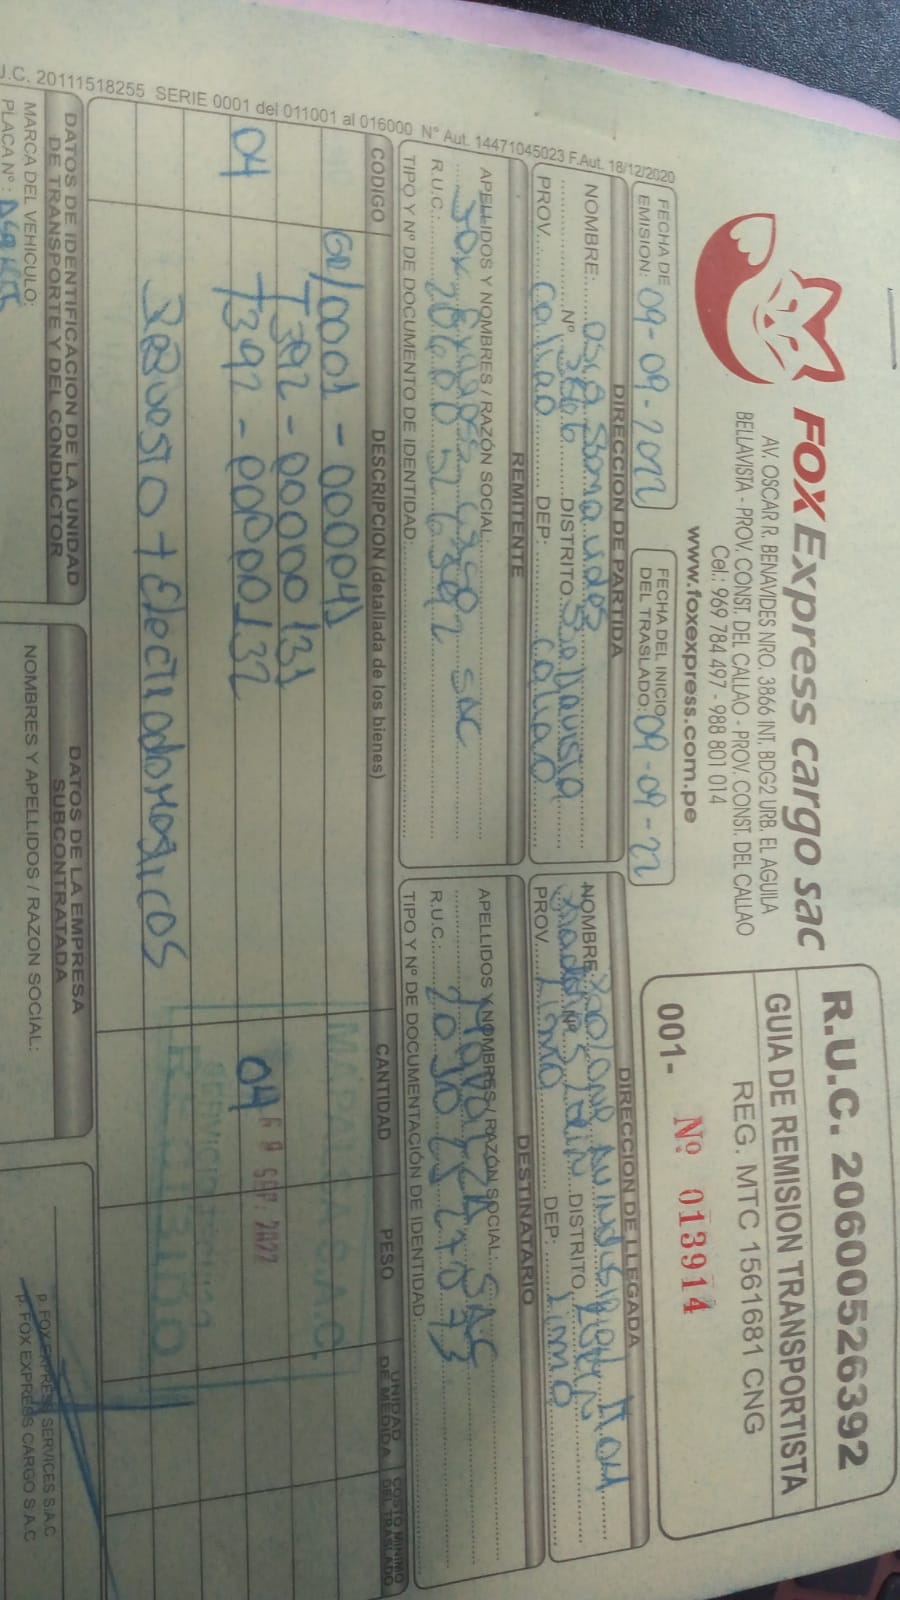 FOX Express cargo sac
AV. OSCAR R. BENAVIDES NRO. 3866 INT. BDG2 URB. EL AGUILA
BELLAVISTA - PROV. CONST. DEL CALLAO - PROV. CONST. DEL CALLAO
Cel.: 969 784 497 - 988 801 014
www.foxexpress.com.pe
R.U.C. 20600526392
GUIA DE REMISION TRANSPORTISTA
REG. MTC 1561681 CNG
001- Nº 013914
FECHA DE EMISION: 09-09-2022
FECHA DEL INICIO DEL TRASLADO: 09-09-22
DIRECCION DE PARTIDA
NOMBRE:
Nº 3866 DISTRITO Bellavista
PROV. Callao DEP: Callao
DIRECCION DE LLEGADA
NOMBRE:
Nº DISTRITO
PROV. Lima DEP: Lima
REMITENTE
APELLIDOS Y NOMBRES / RAZÓN SOCIAL:
Fox Express Cargo SAC
R.U.C.: 20600526392
TIPO Y Nº DE DOCUMENTO DE IDENTIDAD:
DESTINATARIO
APELLIDOS Y NOMBRES / RAZÓN SOCIAL:
SAC
R.U.C.:
TIPO Y Nº DE DOCUMENTACIÓN DE IDENTIDAD:
CODIGO DESCRIPCION (detallada de los bienes) CANTIDAD PESO UNIDAD DE MEDIDA COSTO MINIMO DEL TRASLADO
GR/0001-000041
T392-00000131
04 T392-00000132 04
09 SEP. 2022
Repuesto + Electrodomesticos
S.A.C.
SERVICIO TECNICO
RECIBIDO
DATOS DE IDENTIFICACION DE LA UNIDAD DE TRANSPORTE Y DEL CONDUCTOR
MARCA DEL VEHICULO:
PLACA Nº :
DATOS DE LA EMPRESA SUBCONTRATADA
NOMBRES Y APELLIDOS / RAZON SOCIAL:
p. FOX EXPRESS SERVICES S.A.C
p. FOX EXPRESS CARGO S.A.C
U.C. 20111518255 SERIE 0001 del 011001 al 016000 Nº Aut. 14471045023 F.Aut. 18/12/2020